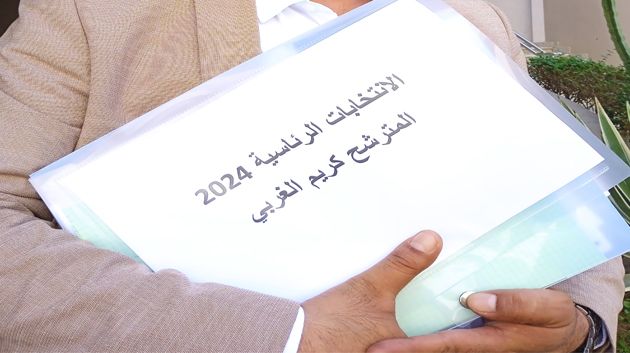 الانتخابات الرئاسية 2024
المترشح كريم الغربي